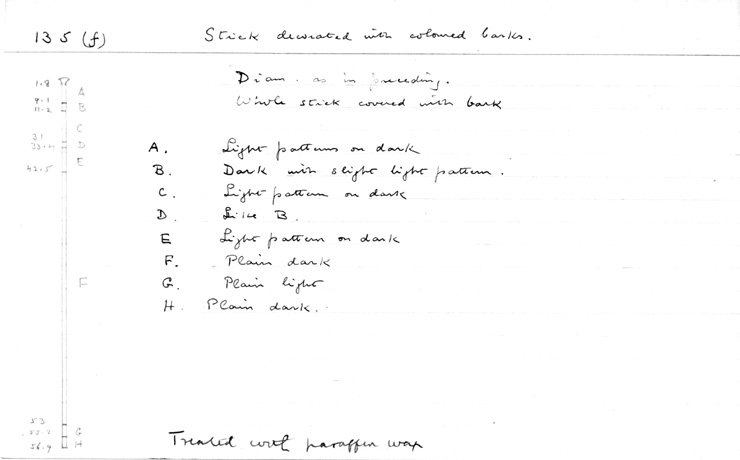 135 (f) Stick decorated with coloured barks.
Diam. as in preceding.
Whole stick covered with bark
1.8
A
9.1
B
11.2
C
31
D
E
42.5
F
53
G
56.9
H
A. Light patterns on dark
B. Dark with slight light pattern.
C. Light pattern on dark
D. Like B.
E Light pattern on dark
F. Plain dark
G. Plain light
H. Plain dark.
Treated with paraffin wax